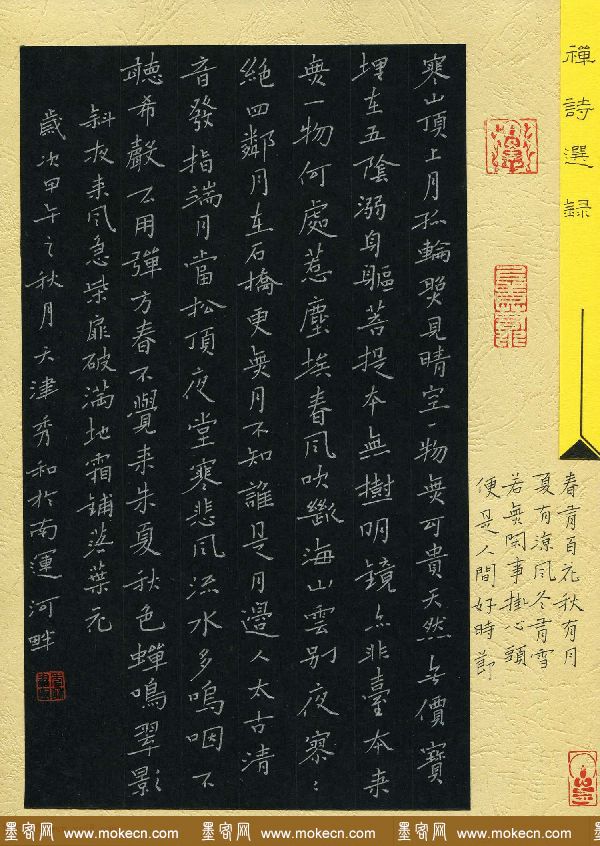 禪詩選録
寒山頂上月孤輪照見晴空一物無可貴天然无價寶
埋在五陰溺身軀菩提本無樹明鏡亦非臺本来
無一物何處惹塵埃春風吹斷海山雲别夜寥〻
絶四鄰月在石橋更無月不知誰是月邊人太古清
音發指端月當松頂夜堂寒悲風流水多嗚咽不
聽希聲不用彈方春不覺来朱夏秋色蟬鳴翠影
斜夜来風急柴扉破滿地霜鋪落葉花
歲次甲午之秋月天津秀和於南運河畔
春有百花秋有月
夏有涼風冬有雪
若無閑事掛心頭
便是人間好時節
墨客网 www.mokecn.com 墨客网 www.mokecn.com 墨客网 www.mokecn.com